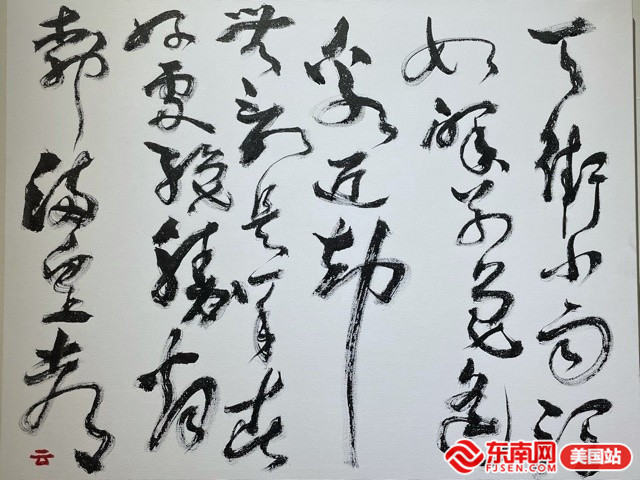 天街小雨润
如酥草色遥
看近却
無最是一年春
好處絕勝烟
柳滿皇都
云
东南网
FJSEN.COM
美国站